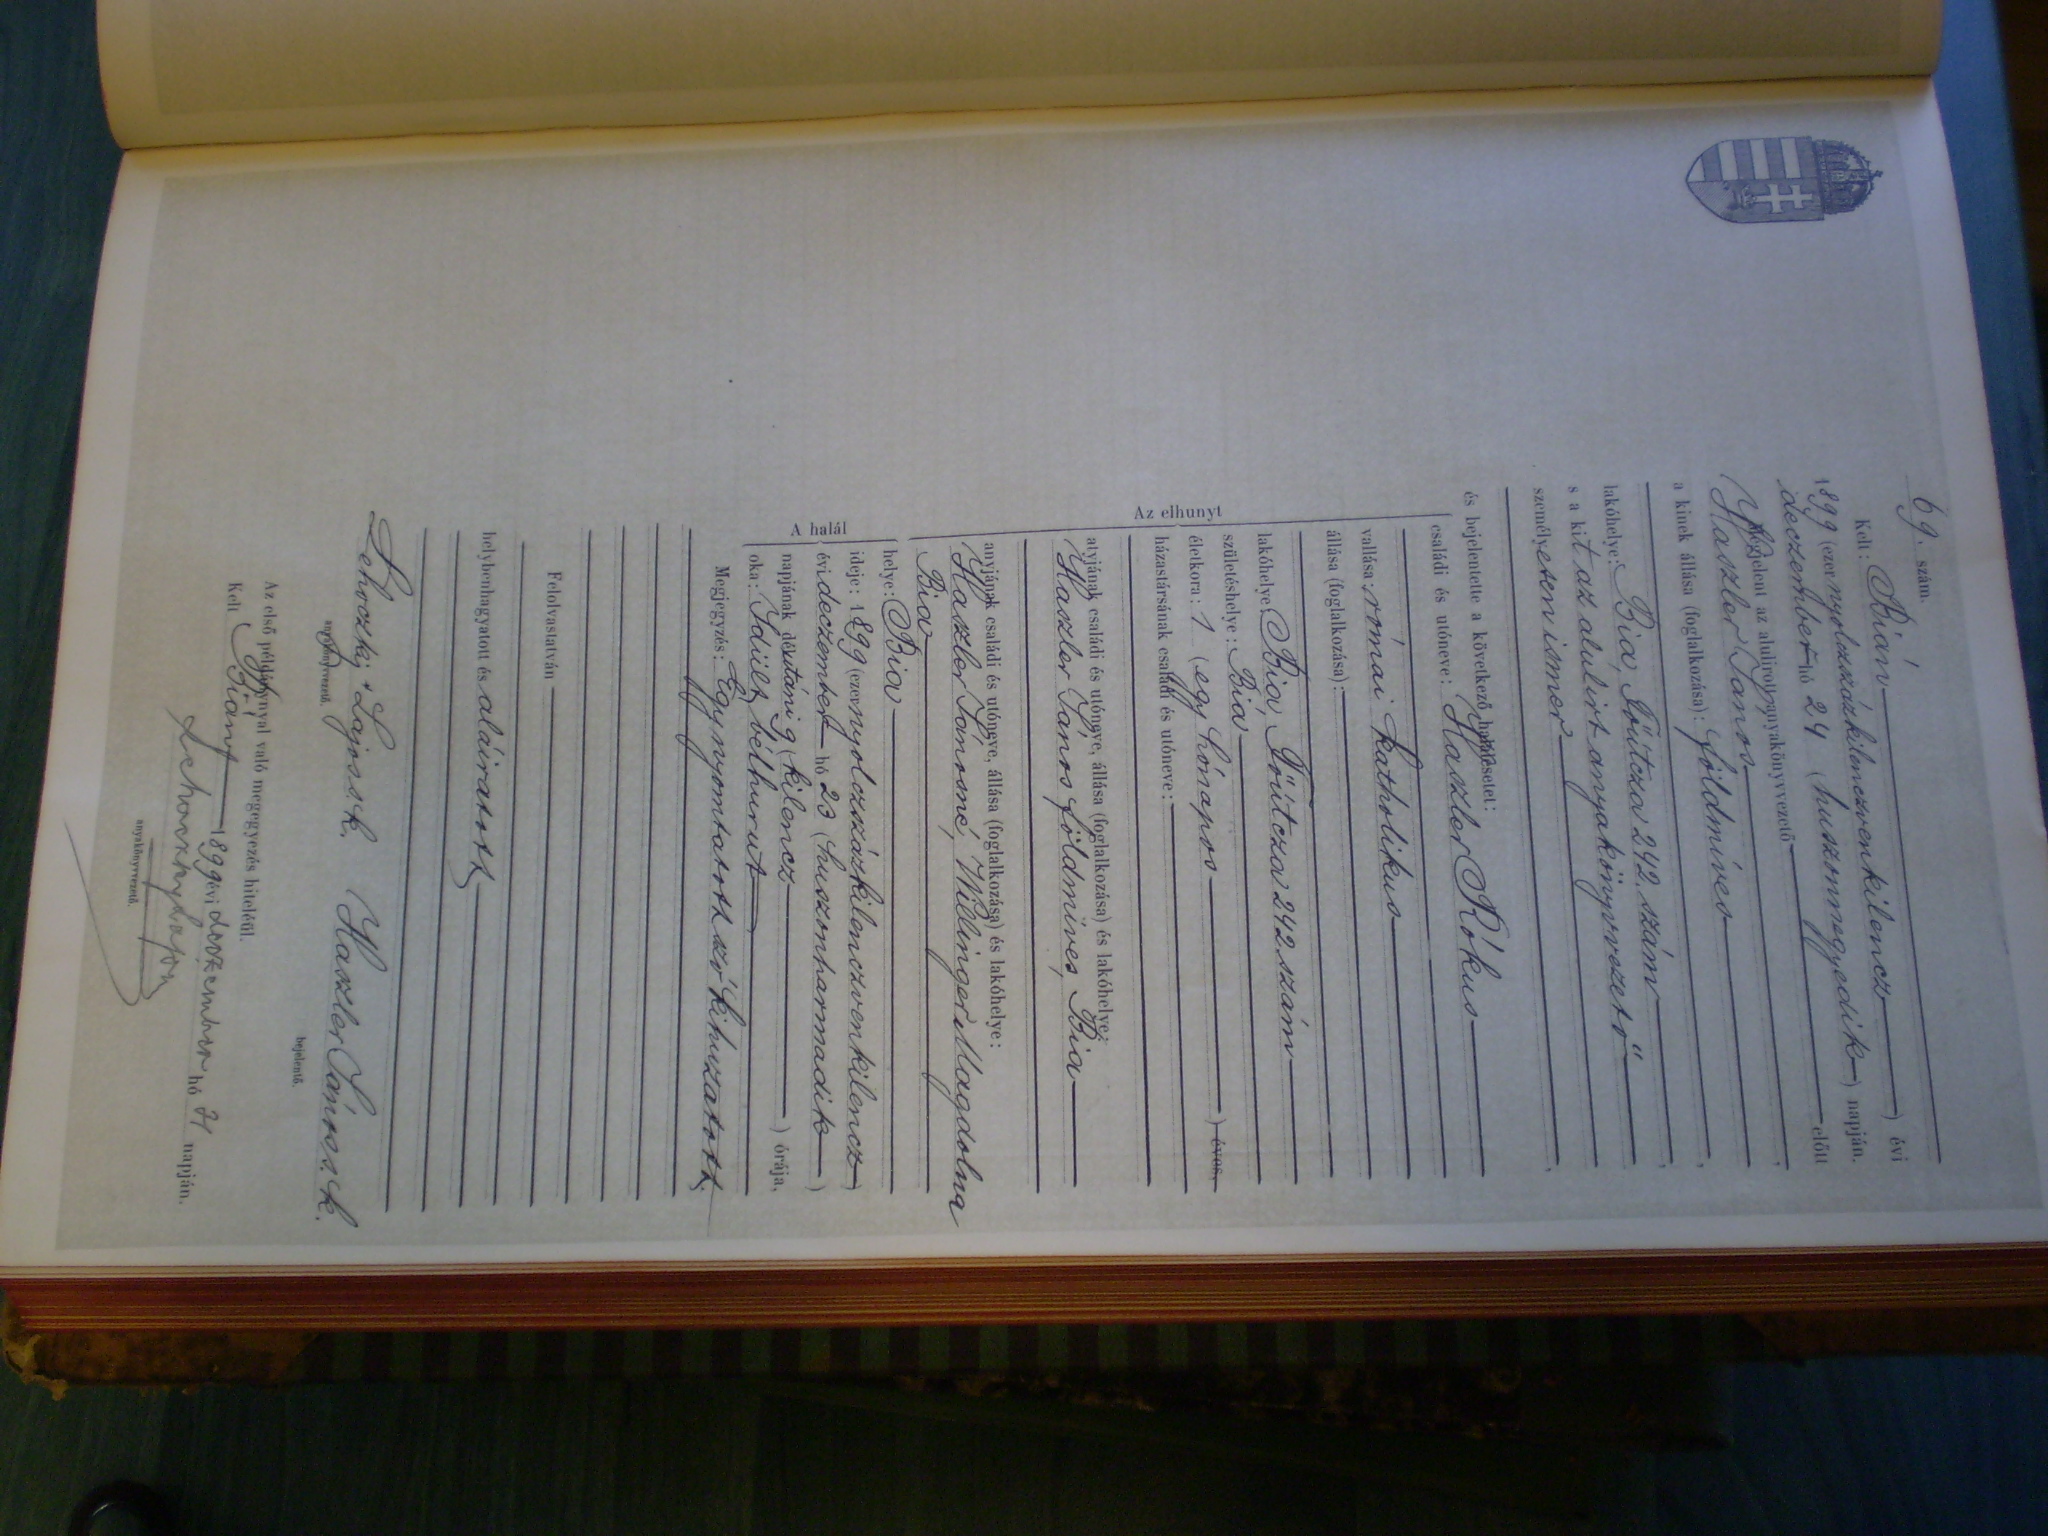 69. szám.
Kelt: Bián 
1899 (ezernyolczszázkilenczvenkilencz) évi
deczember hó 24 (huszonnegyedik) napján.
Megjelent az alulirott anyakönyvvezető előtt
Haszler János,
a kinek állása (foglalkozása): földmíves,
lakóhelye: Bia, Főútcza 242. szám,
s a kit az alulirt anyakönyvvezető
személyesen ismer,
és bejelentette a következő halálesetet:
családi és utóneve: Haszler Rókus
vallása: római katholikus
állása (foglalkozása):
Az elhunyt
lakóhelye: Bia, Főútcza 242. szám
születéshelye: Bia
életkora: 1 (egy hónapos) éves,
házastársának családi és utóneve:
atyjának családi és utóneve, állása (foglalkozása) és lakóhelye:
Haszler János földmíves, Bia
anyjának családi és utóneve, állása (foglalkozása) és lakóhelye:
Haszler Jánosné, Willinger Magdolna
Bia
A halál
helye: Bia
ideje: 1899 (ezernyolczszázkilenczvenkilencz)
évi deczember hó 23 (huszonharmadik)
napjának délutáni 9 (kilencz) órája,
oka: Idült bélhurut
Megjegyzés: Egy nyomtatott szó kihuzatott,
Felolvastatván
helybenhagyatott és aláiratott
Lehoczky Lajos s.k. Haszler János s.k.
anyakönyvvezető. bejelentő.
Az első példánynyal való megegyezés hiteléül.
Kelt Biánt 1899 évi deczember hó 24 napján.
Lehoczky Lajos
anyakönyvvezető.